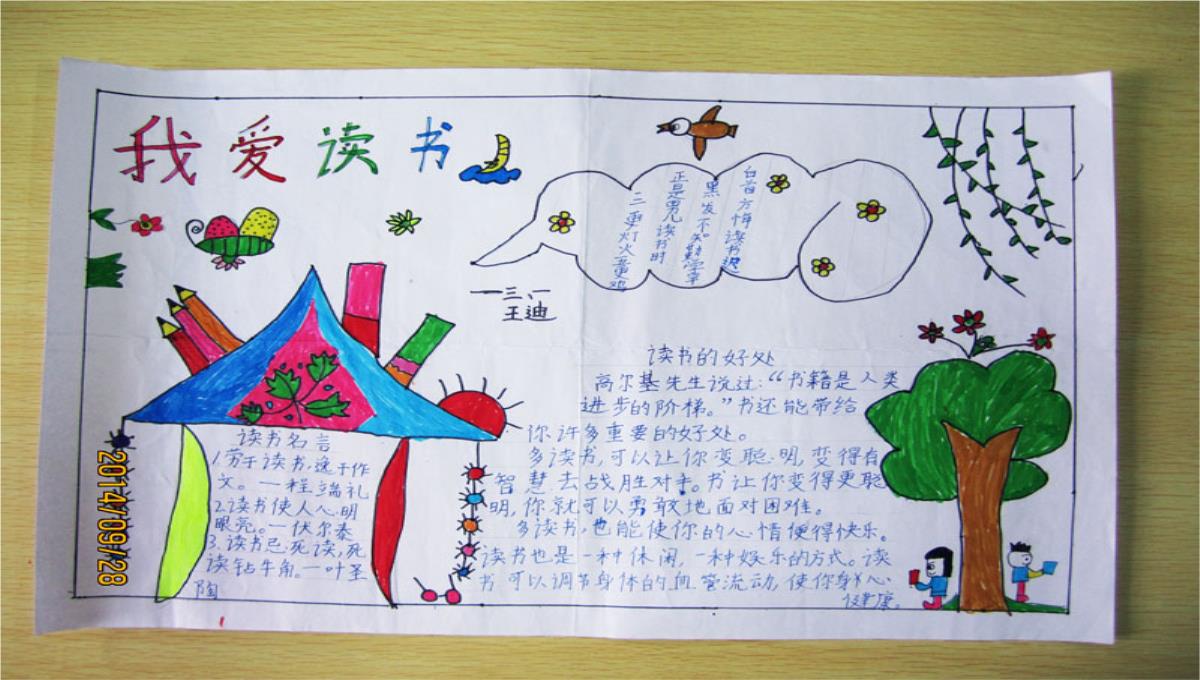 我爱读书
三更灯火五更鸡
正是男儿读书时
黑发不知勤学早
白首方悔读书迟
三、一
王迪
读书的好处
高尔基先生说过:“书籍是人类
进步的阶梯。”书还能带给
你许多重要的好处。
多读书,可以让你变聪明,变得有
智慧去战胜对手。书让你变得更聪
明,你就可以勇敢地面对困难。
多读书,也能使你的心情便得快乐。
读书也是一种休闲,一种娱乐的方式。读
书可以调节身体的血管流动,使你身心
健康。
读书名言
1.劳于读书,逸于作
文。一程端礼
2.读书使人心明
眼亮。一伏尔泰
3.读书忌死读,死
读钻牛角。一叶圣
陶
2014/09/28